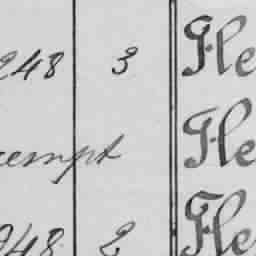 248 3 Fle
empt Fle
948 2 Fle